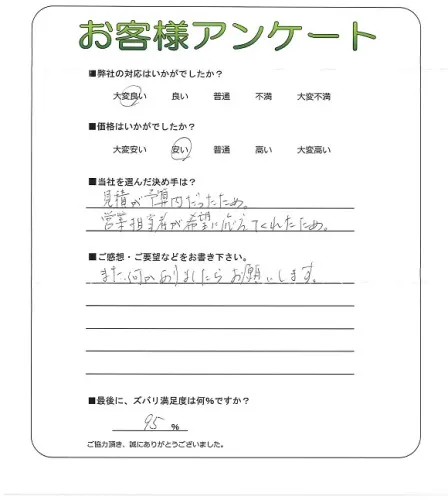 お客様アンケート
■弊社の対応はいかがでしたか？
大変良い 良い 普通 不満 大変不満
■価格はいかがでしたか？
大変安い 安い 普通 高い 大変高い
■当社を選んだ決め手は？
見積が予算内だったため。
営業担当者が希望に応えてくれたため。
■ご感想・ご要望などをお書き下さい。
また、何かありましたらお願いします。
■最後に、ズバリ満足度は何%ですか？
95 %
ご協力頂き、誠にありがとうございました。